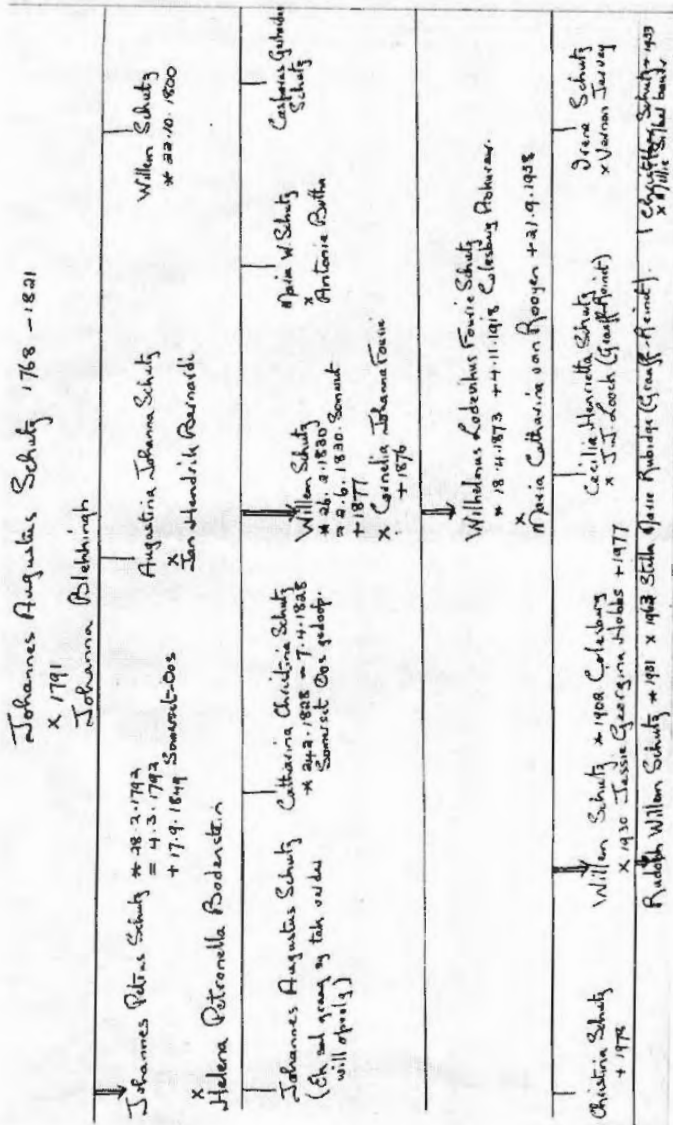 Johannes Augustus Schutz 1768 – 1821
x 1791
Johanna Blehkirah
Johannes Petrus Schutz * 28.2.1792
= 4.3.1792
+ 17.9.1849 Somerset-Oos
x
Helena Petronella Bodenstein
Augustina Johanna Schutz
x
Jan Hendrik Barnardt
Willem Schutz
* 22.10.1800
Johannes Augustus Schutz
(Ek sal graag sy tak verder
will opvolg.)
Catharina Christina Schutz
* 24.2.1828 – 7.4.1828
Somerset Oos gedoop.
Willem Schutz
* 26.2.1830
= 2.6.1830 Somerset
+ 1877
x Cornelia Johanna Fourie
+ 1876
Maria W. Schutz
x
Antonie Botha
Casparus Gertrudus
Schutz
Wilhelmus Lodevikus Fourie Schutz
* 18.4.1873 + 4.11.1918 Colesburg
x
Maria Catharina van Rooyen + 21.9.1958
Christina Schutz
+ 1978
Willem Schutz * 1902 Colesburg
x 1930 Jessie Georgina Hobbs + 1977
Cecilia Henrietta Schutz
x J.J. Looch (Graaff-Reinet)
Irene Schutz
x Vernon Jurvey
Rudolph Willem Schutz * 1931 x 1962 Stella Marie Rubidge (Graaff-Reinet).
Schutz * 1933
x Millie